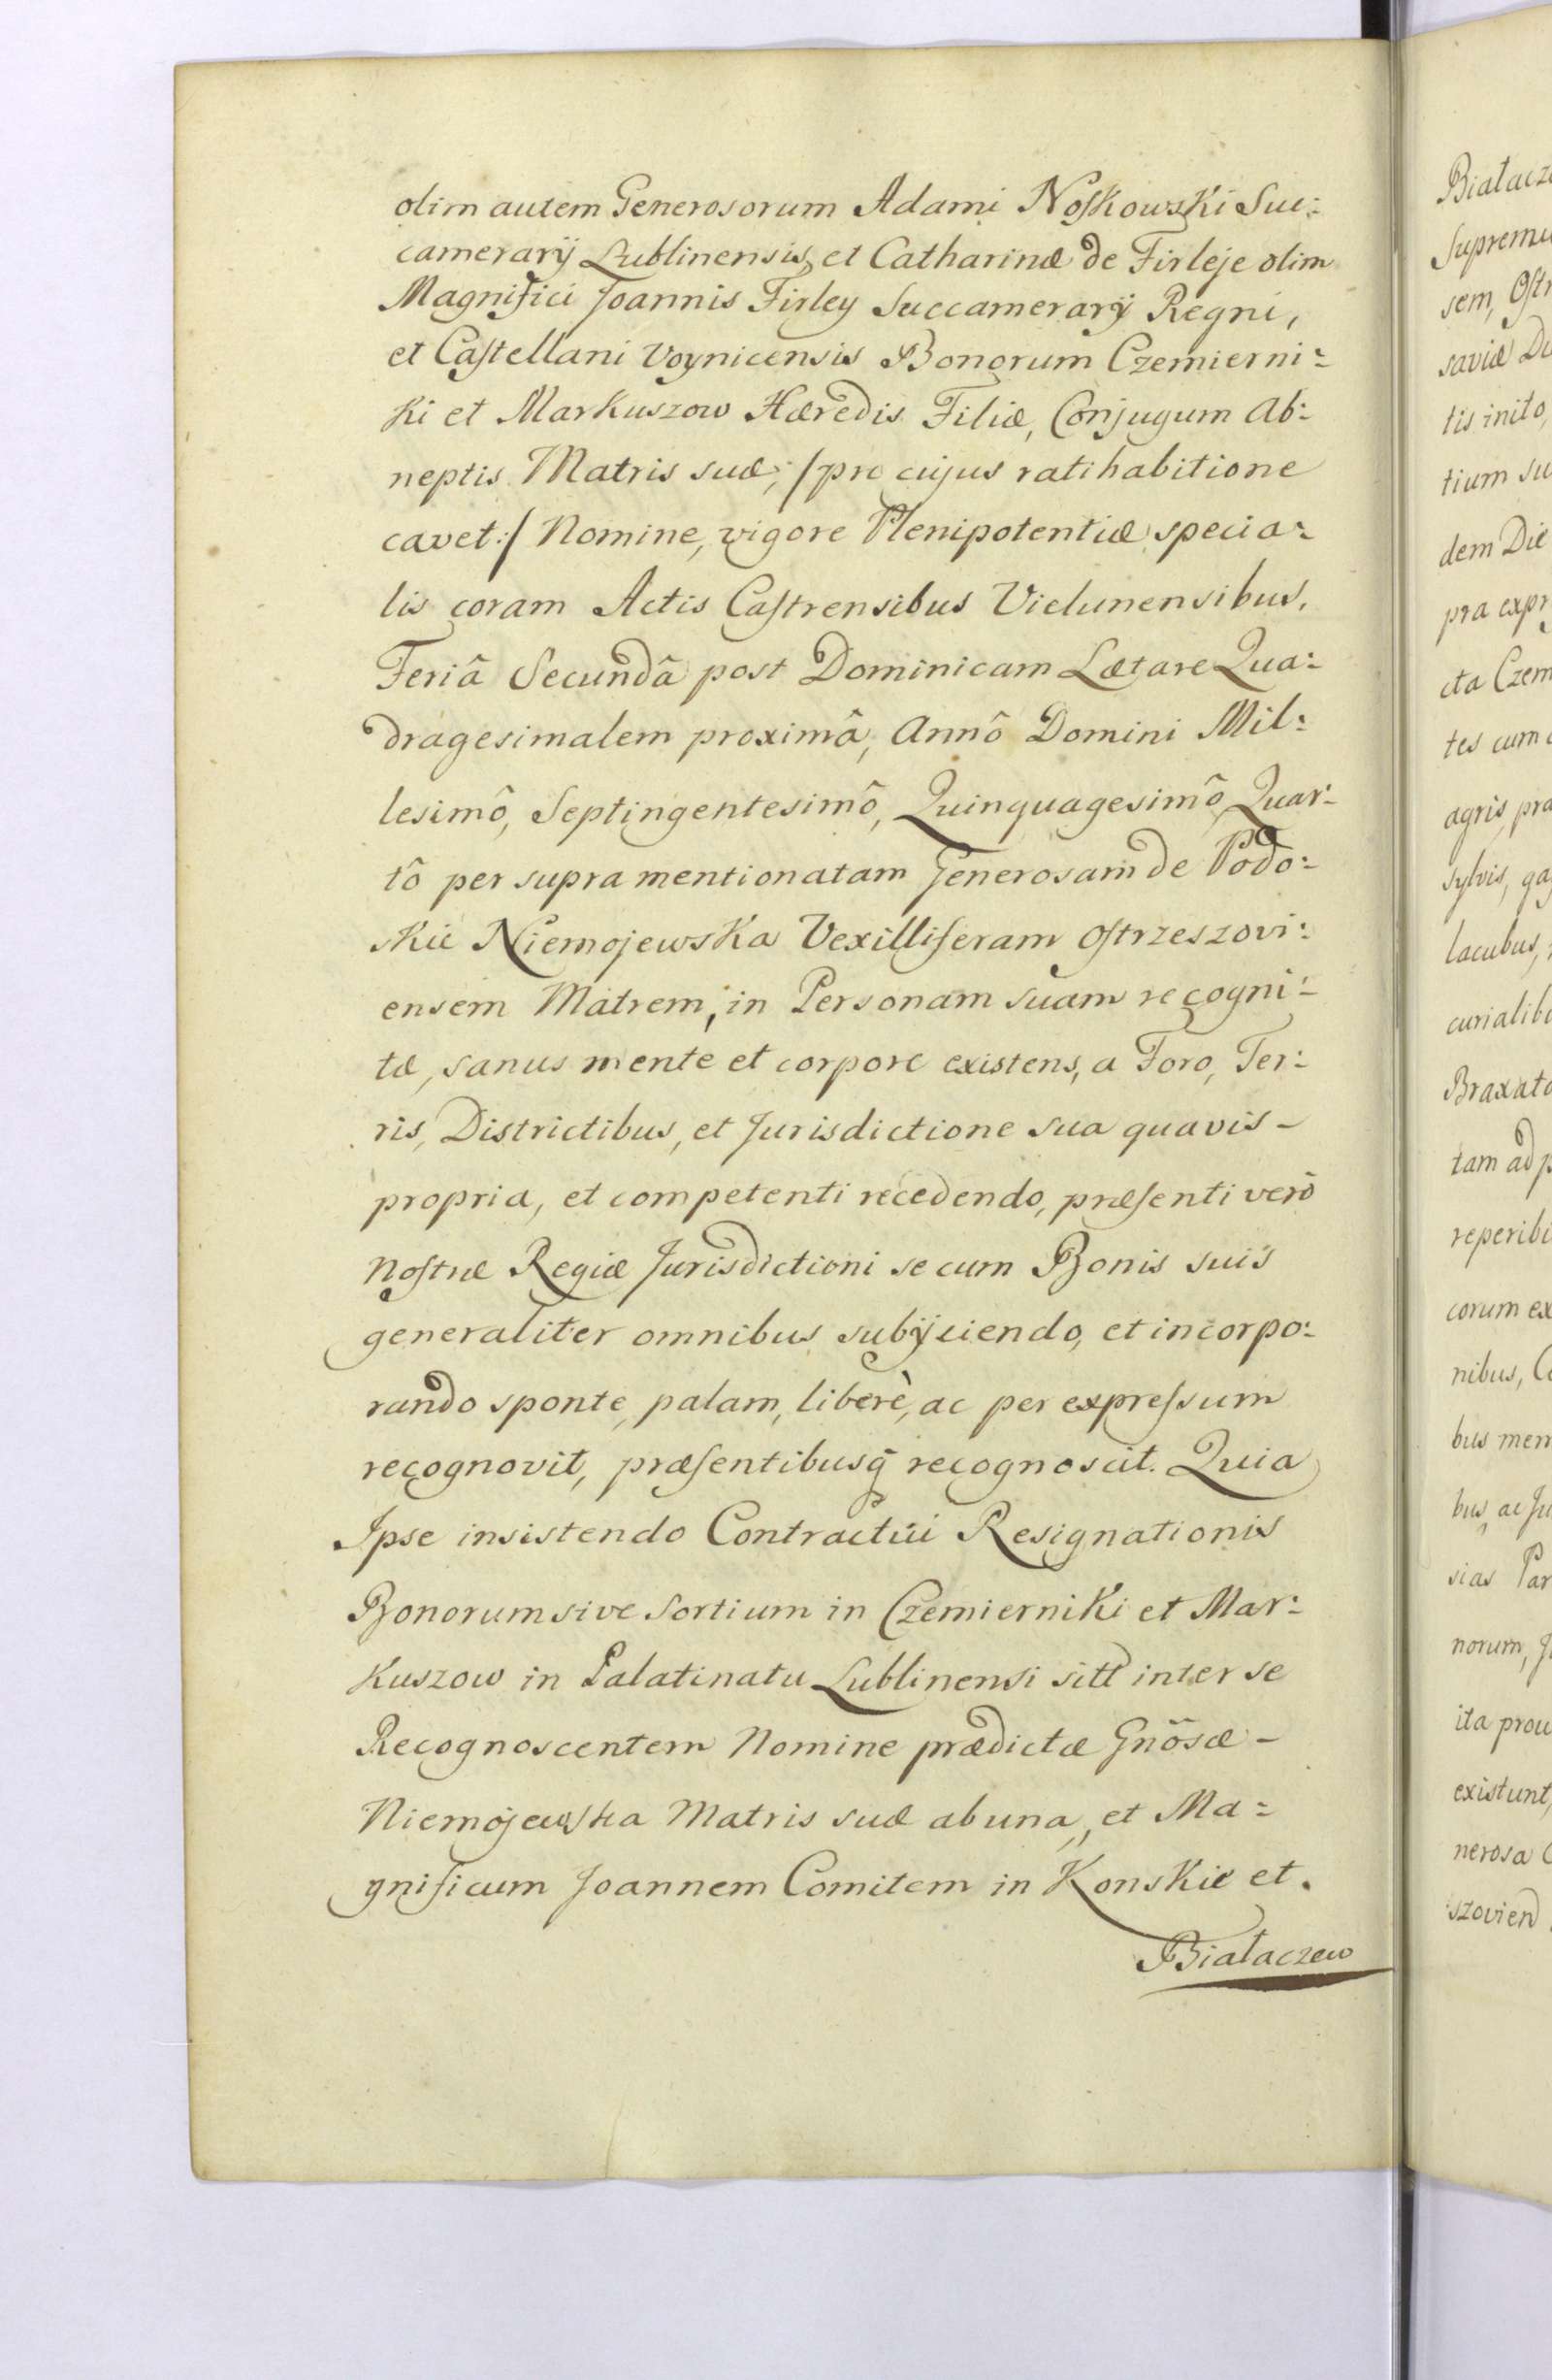 olim autem Generosorum Adami Noſkowski Suc:
camerarij Lublinensis, et Catharinæ de Firleje olim
Magnifici Joannis Firley Succamerarij Regni,
et Caſtellani Voynicensis Bonorum Czemierni:
ki et Markuszow Hæredis Filiæ, Conjugum Ab:
neptis Matris suæ; /pro cujus ratihabitione
cavet:/ Nomine, vigore Plenipotentiæ specia:
lis coram Actis Caſtrensibus Vielunensibus,
Feriâ Secundâ post Dominicam Lætare Qua:
dragesimalem proximâ, Annô Domini Mil:
lesimô, Septingentesimô, Quinquagesimô Quar:
tô per supra mentionatam Generosam de Podo:
skie Niemojewska Vexilliferam Oſtrzeszovi:
ensem Matrem, in Personam suam recogni:
tæ, sanus mente et corpore existens, a Foro, Ter:
ris, Districtibus, et Jurisdictione sua quavis -
propria, et competenti recedendo, præſenti verò
Noſtræ Regiæ Jurisdictioni se cum Bonis suis
generaliter omnibus subijciendo, et incorpo:
rando sponte, palam, liberè, ac per expreſsum
recognovit, præſentibusq̃ recognoscit. Quia
Ipse insistendo Contractui Resignationis
Bonorum sive Sortium in Czemierniki et Mar:
kuszow in Palatinatu Lublinensi sitt inter se
Recognoscentem Nomine prædictæ Gnõsæ -
Niemojewska Matris suæ ab una, et Ma:
gnificum Joannem Comitem in Konskie et.
Białaczew
Białacze
Supremu
sem, Oſtr
saviæ Du
tis inito,
tium su
dem Die
pra expr
cta Czem
tes cum
agris pra
sylvis, ga
lacubus,
curialibu
Braxato
tam ad p
reperibi
corum ex
nibus, C
bus mem
bus, ac Ju
sias Par
norum, J
ita prou
existunt,
nerosa
szovien